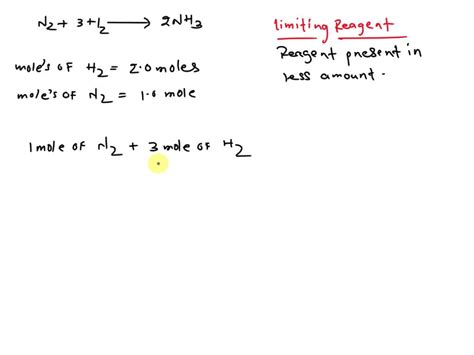 N₂ + 3H₂ ⟶ 2NH₃
mole's of H₂ = 2.0 moles
mole's of N₂ = 1.0 mole
1 mole of N₂ + 3 mole of H₂
limiting Reagent
Reagent present in
less amount.